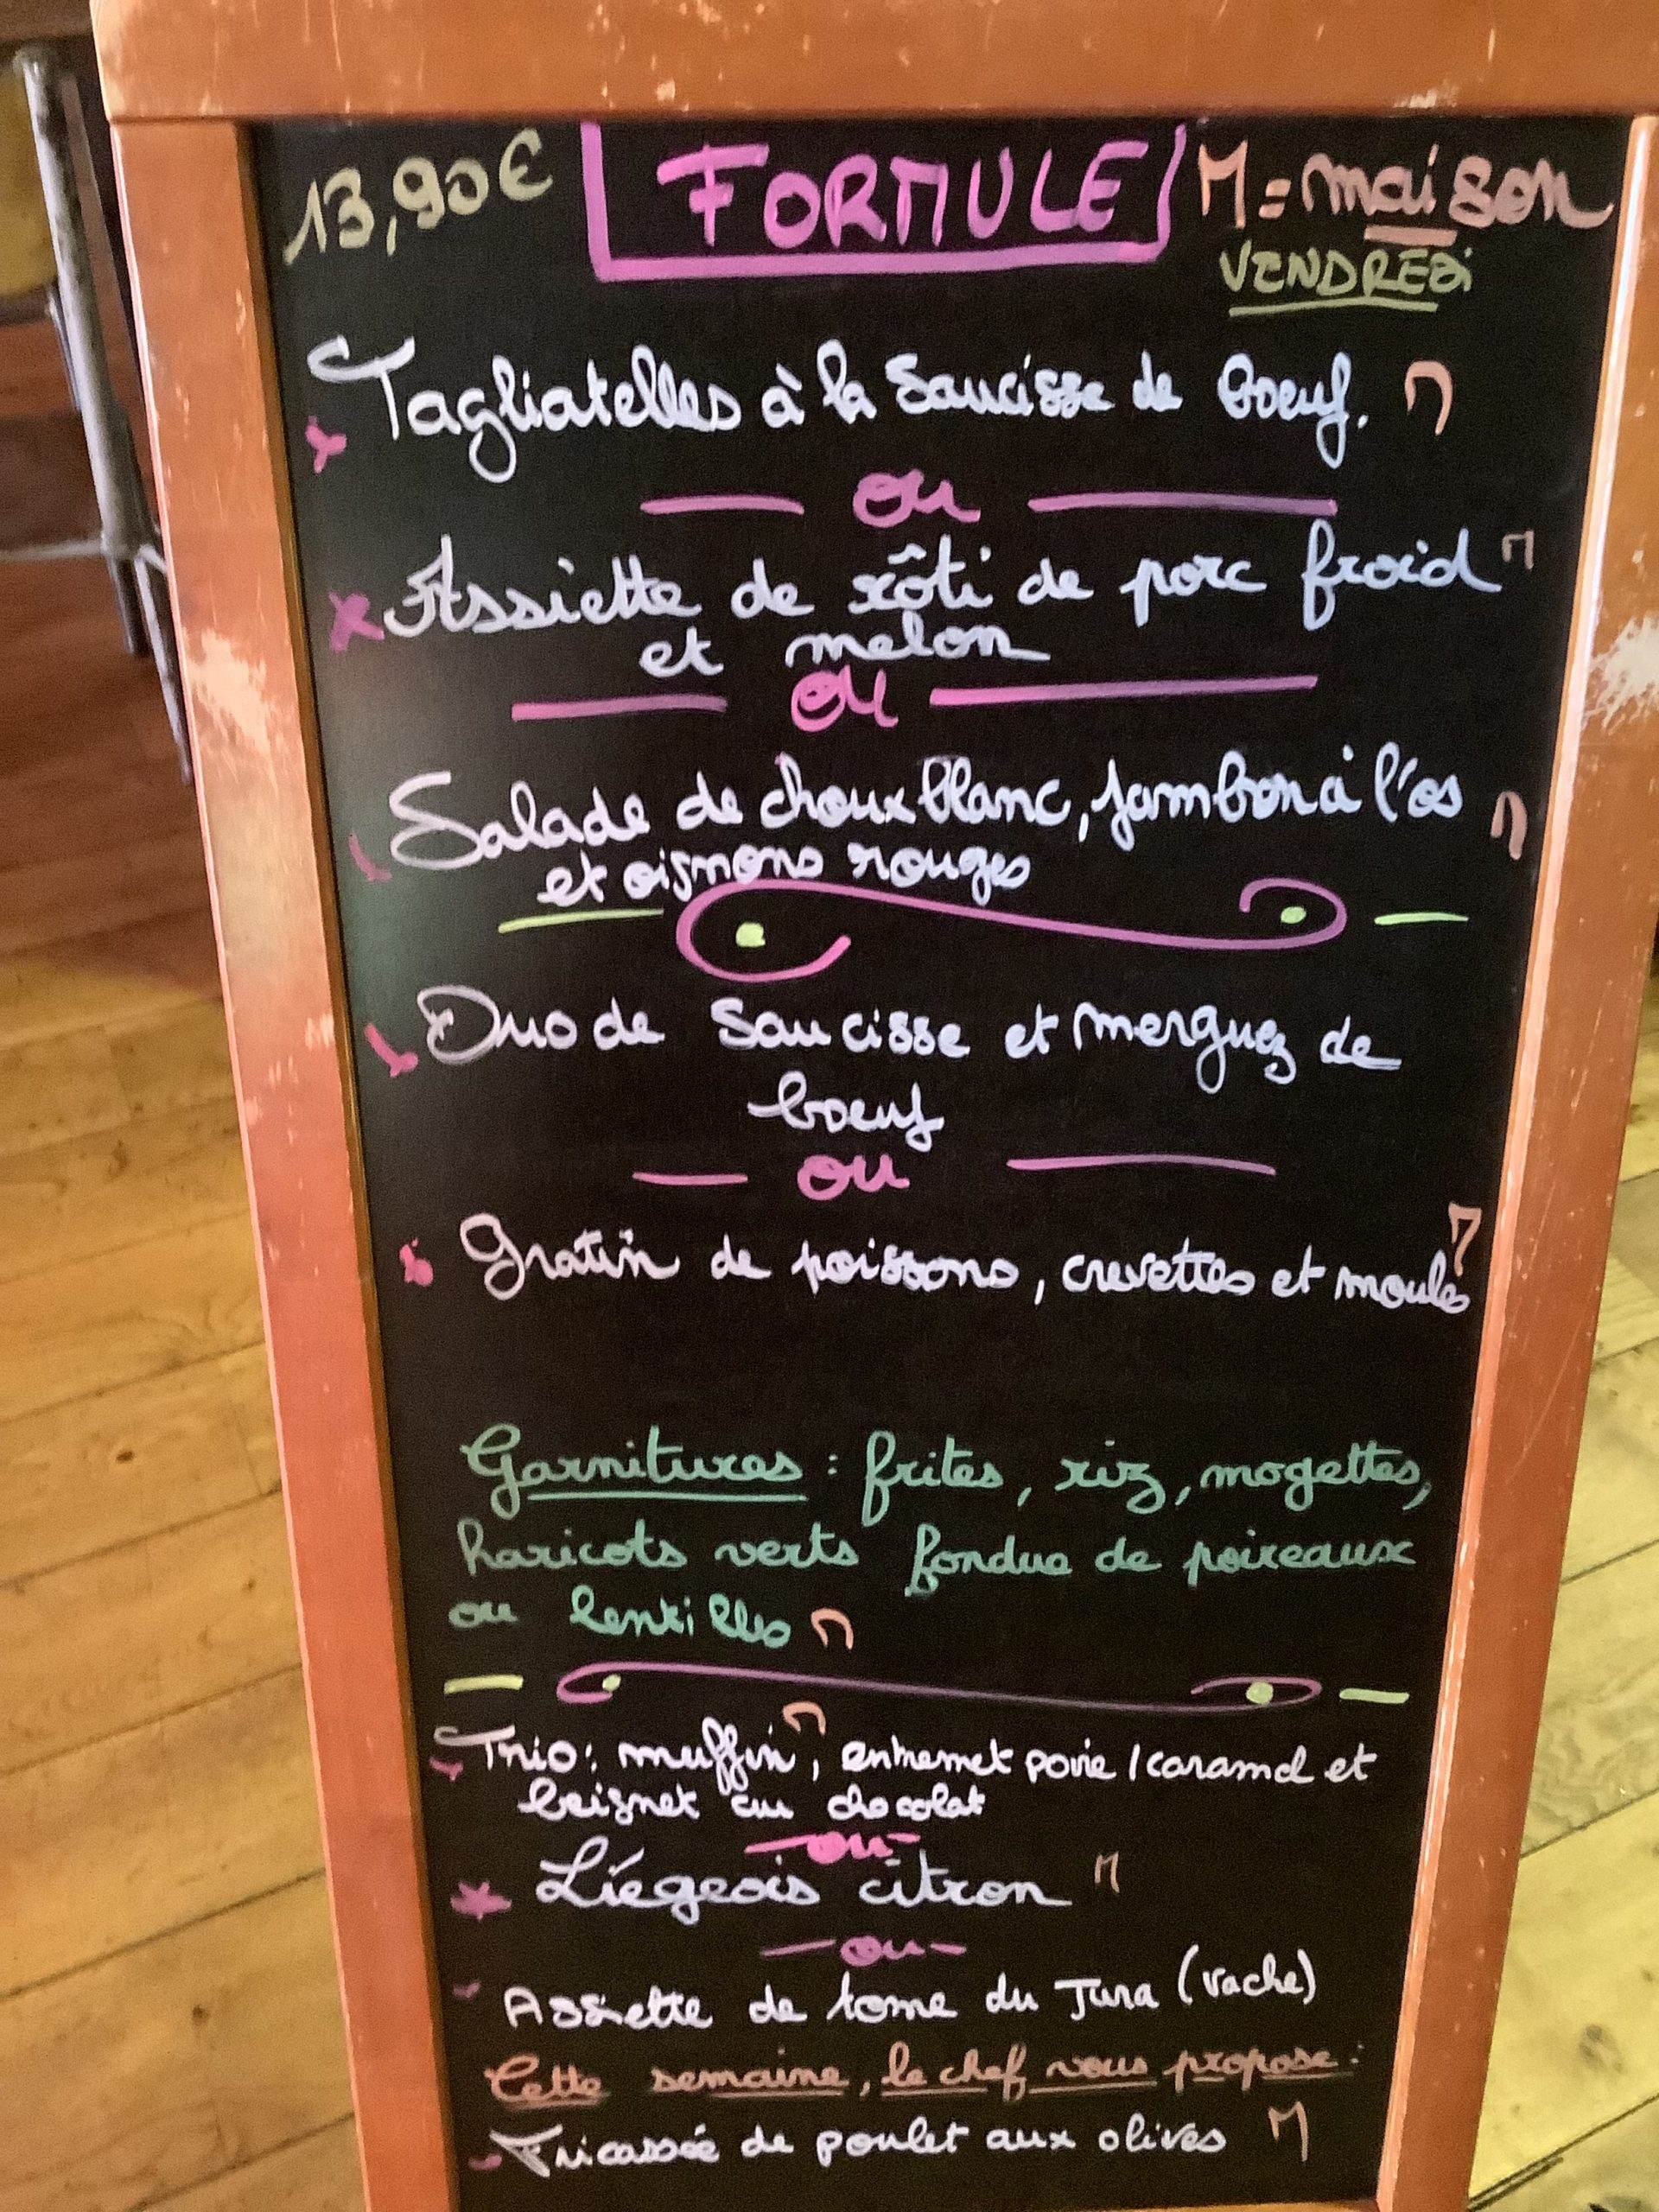 13,90€ FORMULE M = maison
VENDREDi
Tagliatelles à la Saucisse de boeuf. M
ou
Assiette de rôti de porc froid M
et melon
ou
Salade de choux blanc, jambon à l'os M
et oignons rouges
Duo de saucisse et merguez de
boeuf
ou
Gratin de poissons, crevettes et moules M
Garnitures : frites, riz, mogettes,
haricots verts fondue de poireaux
ou lentilles M
Trio : muffin M, entremet poire / caramel et
beignet au chocolat
ou
Liégeois citron M
ou
Assiette de tome du Jura (vache)
Cette semaine, le chef vous propose :
Fricassée de poulet aux olives M